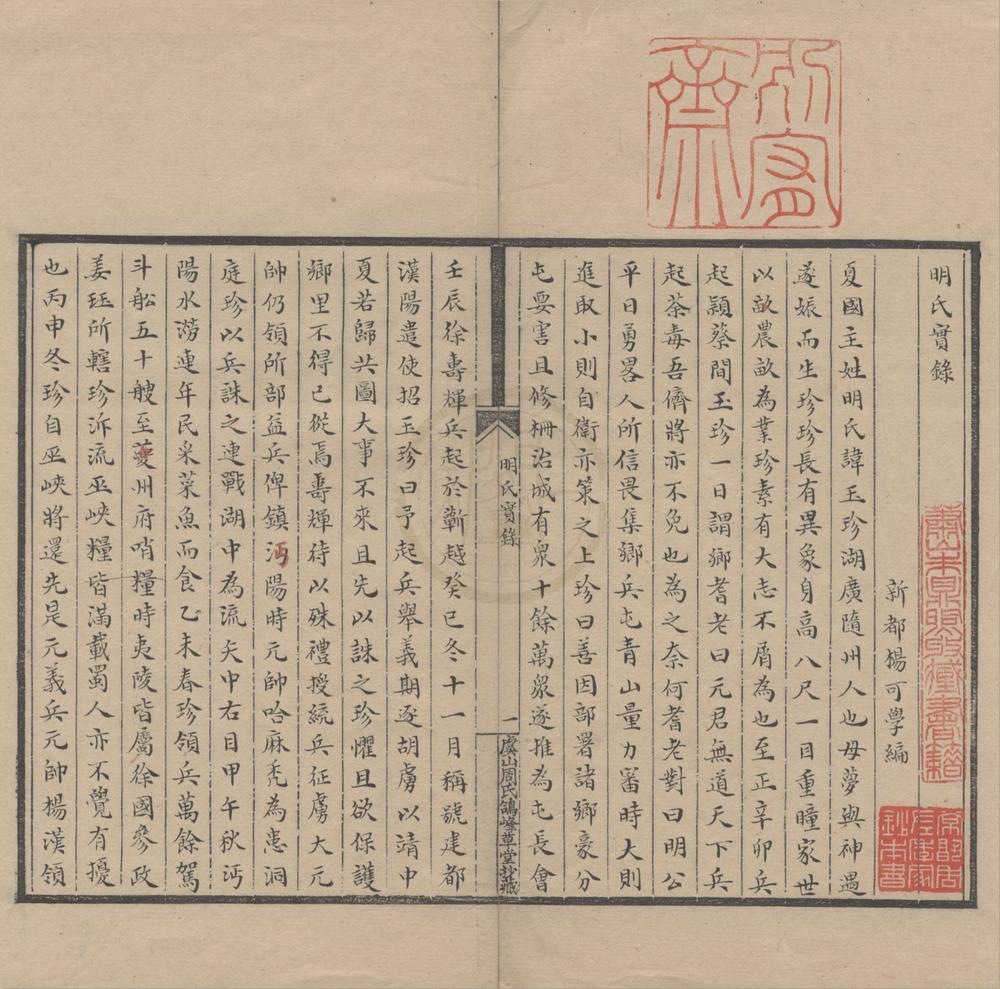 明氏實錄
新都楊可學編
夏國主姓明氏諱玉珍湖廣隨州人也母夢與神遇
遂娠而生珍珍長有異象身高八尺一目重瞳家世
以畝農畝為業珍素有大志不屑為也至正辛卯兵
起潁蔡間玉珍一日謂鄉耆老曰元君無道天下兵
起荼毒吾儕將亦不免也為之奈何耆老對曰明公
平日勇畧人所信畏集鄉兵屯青山量力審時大則
進取小則自衛亦策之上珍曰善因部署諸鄉豪分
屯要害且修柵治城有衆十餘萬衆遂推為屯長會
明氏實錄
一
虞山周氏鴿峰草堂抄藏
壬辰徐壽輝兵起於蘄越癸已冬十一月稱號建都
漢陽遣使招玉珍曰予起兵舉義期逐胡虜以靖中
夏若歸共圖大事不來且先以誅之珍懼且欲保護
鄉里不得已從焉壽輝待以殊禮授統兵征虜大元
帥仍領所部益兵俾鎮沔陽時元帥哈麻禿為患洞
庭珍以兵誅之連戰湖中為流矢中右目甲午秋沔
陽水澇連年民采菜魚而食乙未春珍領兵萬餘駕
斗船五十艘至夔州府哨糧時夷陵皆屬徐國參政
姜珏所轄珍泝流巫峽糧皆滿載蜀人亦不覺有擾
也丙申冬珍自巫峽將還先是元義兵元帥楊漢領